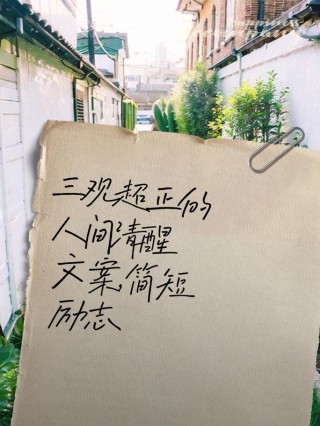 三观超正的
人间清醒
文案,简短
励志